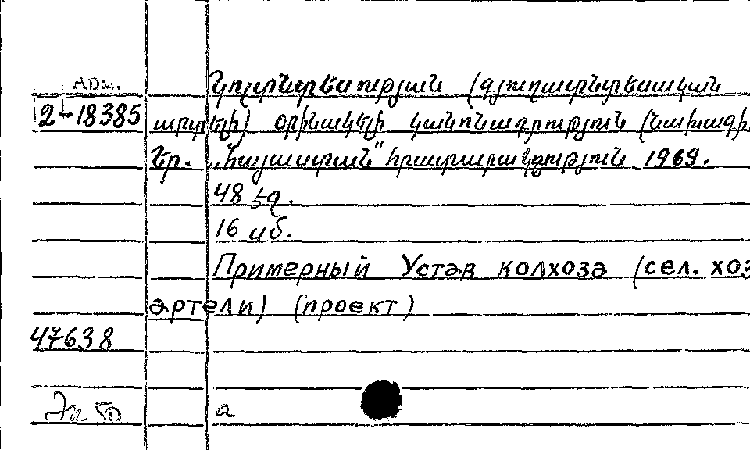 Арм.
Կոլտնտեսության (գյուղատնտեսական
2-18385 արտելի) օրինակելի կանոնադրություն (նախագիծ
Եր. „Հայաստան" հրատարակչություն 1969.
48 էջ.
16 սմ.
Примерный Устав колхоза (сел. хоз
артели) (проект)
47638
а